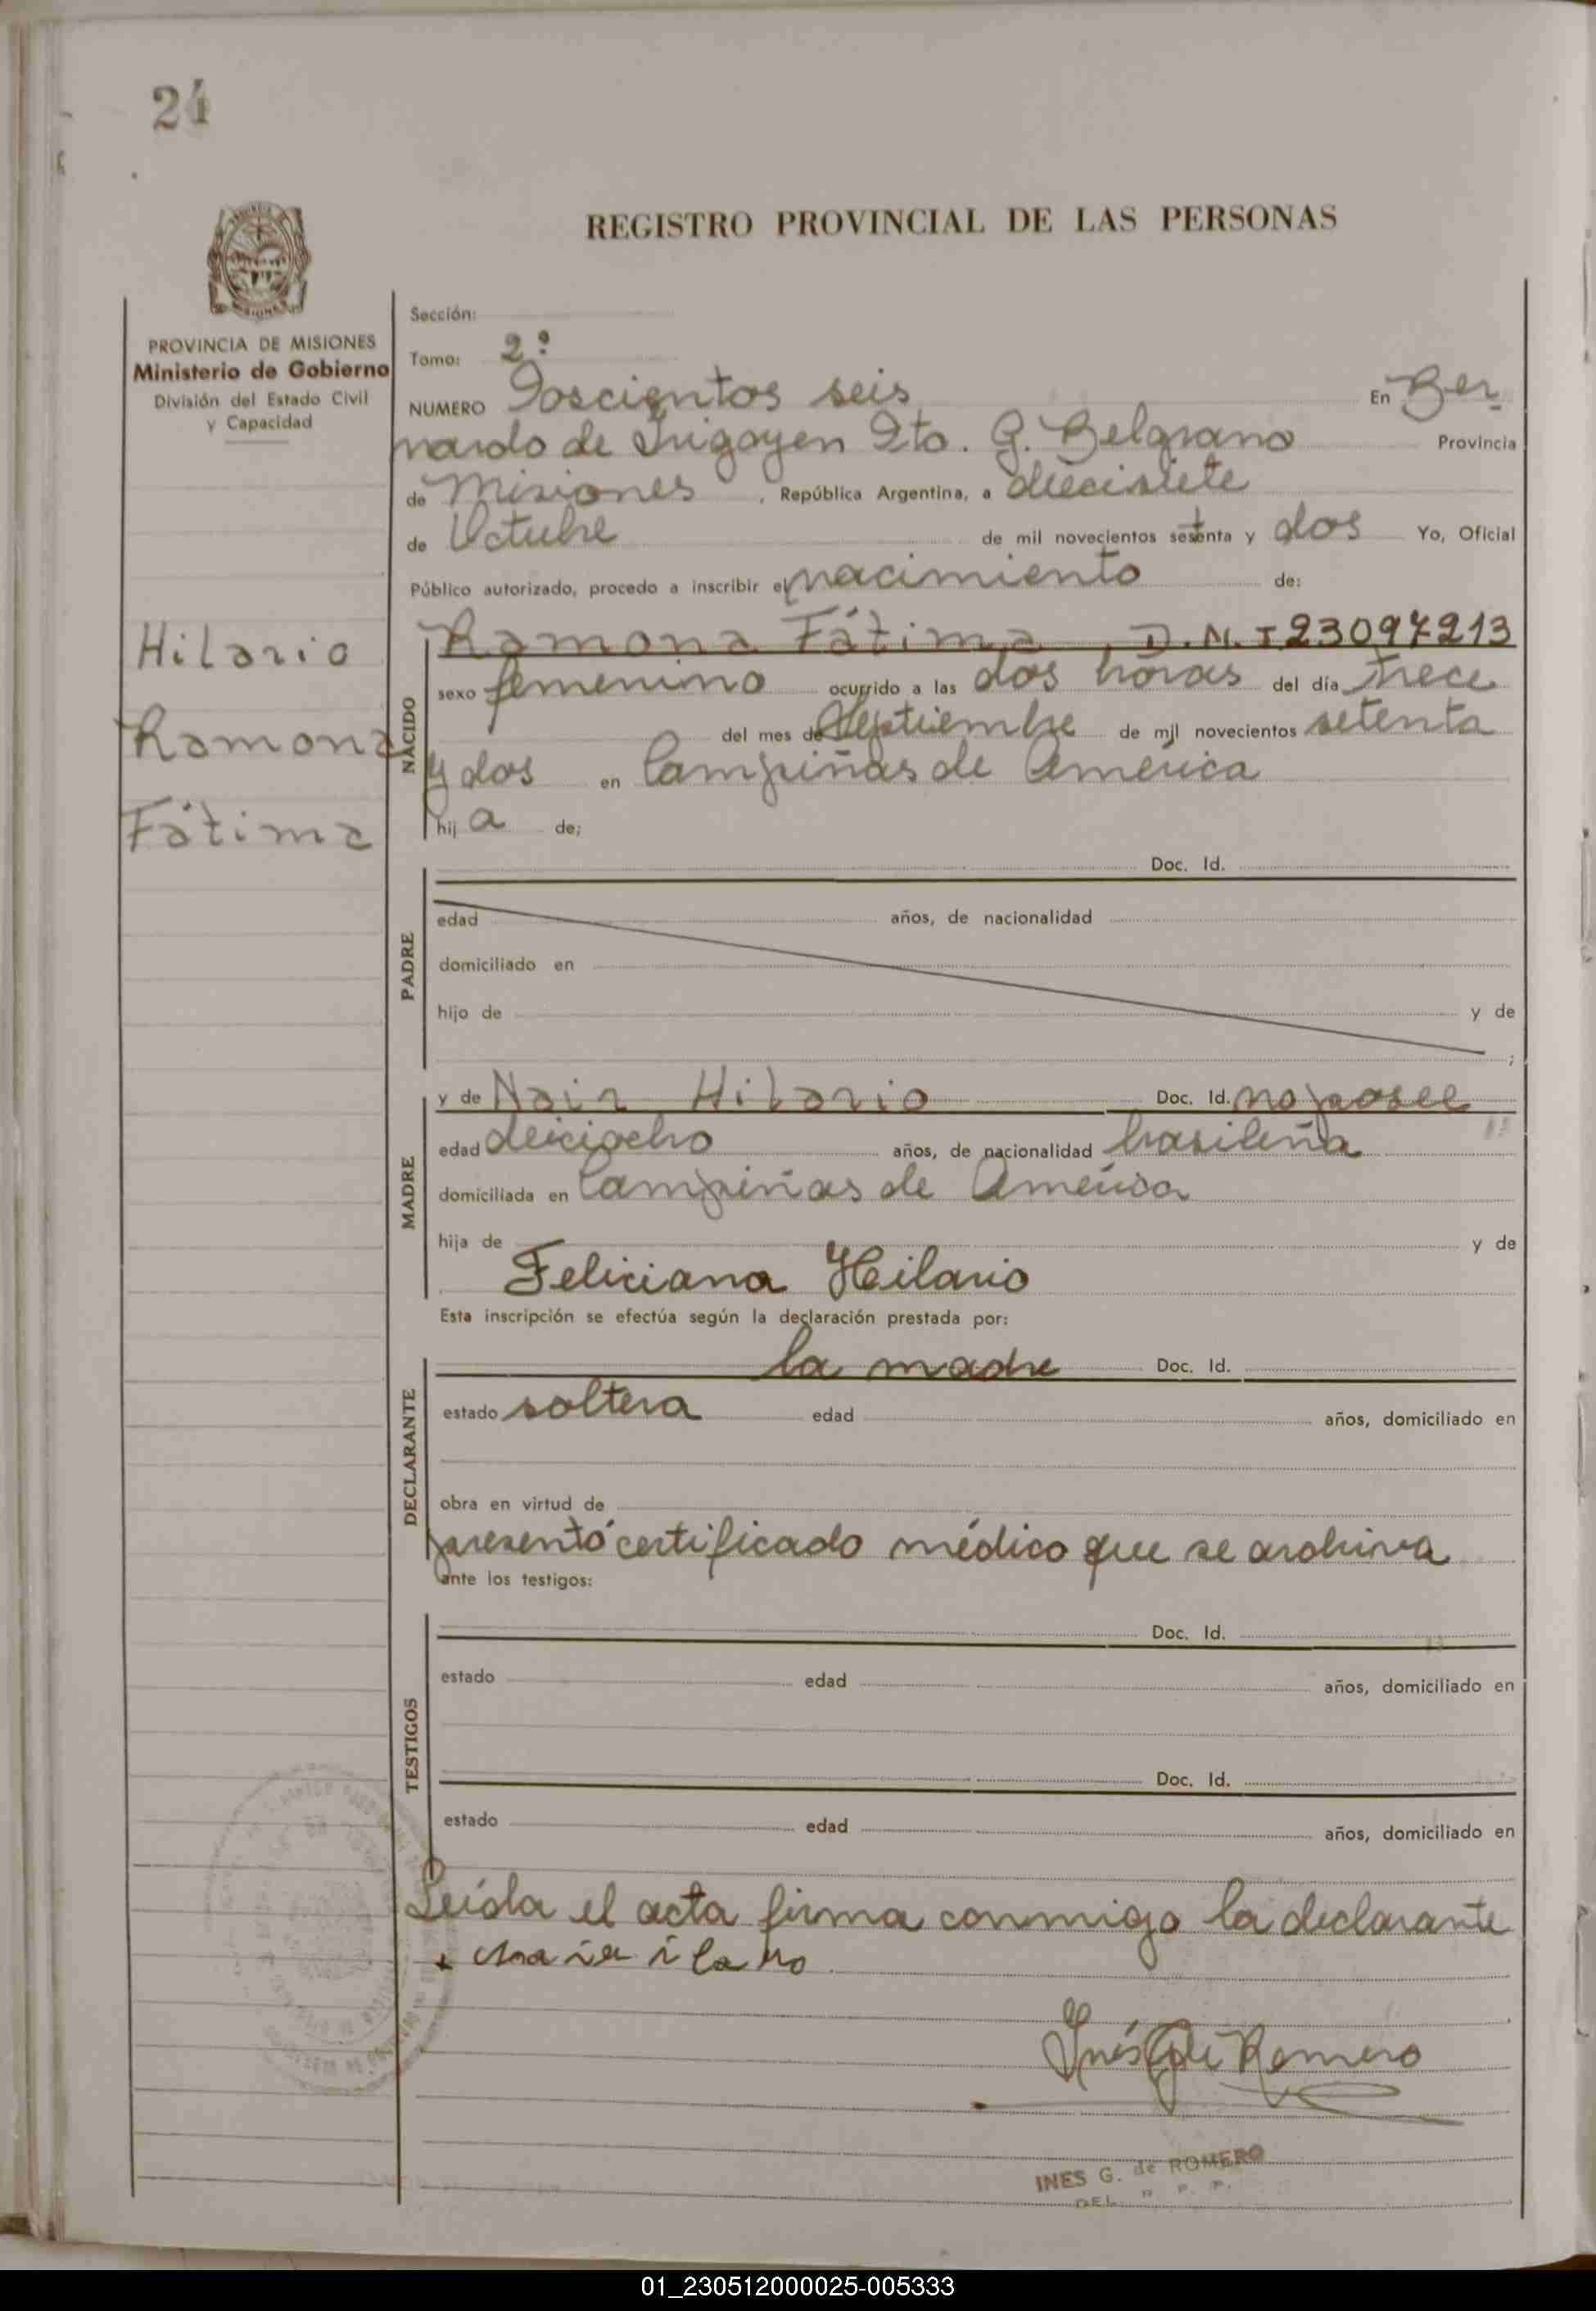 24
REGISTRO PROVINCIAL DE LAS PERSONAS
PROVINCIA DE MISIONES
Ministerio de Gobierno
División del Estado Civil
y Capacidad
Hilario
Ramona
Fátima
Sección:
Tomo: 2º
NUMERO Doscientos seis En Ber
nardo de Irigoyen Dto. G. Belgrano Provincia
de Misiones, República Argentina, a diecisiete
de Octubre de mil novecientos setenta y dos Yo, Oficial
Público autorizado, procedo a inscribir el nacimiento de:
NACIDO
Ramona Fátima D.N.I 23097213
sexo femenino ocurrido a las dos horas del día trece
del mes de Septiembre de mil novecientos setenta
y dos en Campiñas de América
hij a de;
PADRE
Doc. Id.
edad años, de nacionalidad
domiciliado en
hijo de y de
;
MADRE
y de Nair Hilario Doc. Id. no posee
edad deiciocho años, de nacionalidad brasileña
domiciliada en Campiñas de América
hija de y de
Feliciana Hilario
Esta inscripción se efectúa según la declaración prestada por:
DECLARANTE
la madre Doc. Id.
estado soltera edad años, domiciliado en
obra en virtud de
presentó certificado médico que se archiva
ante los testigos:
TESTIGOS
Doc. Id.
estado edad años, domiciliado en
Doc. Id.
estado edad años, domiciliado en
Leída el acta firma conmigo la declarante
Inés G de Romero
INES G. de ROMERO
DEL. R. P. P.
01_230512000025-005333